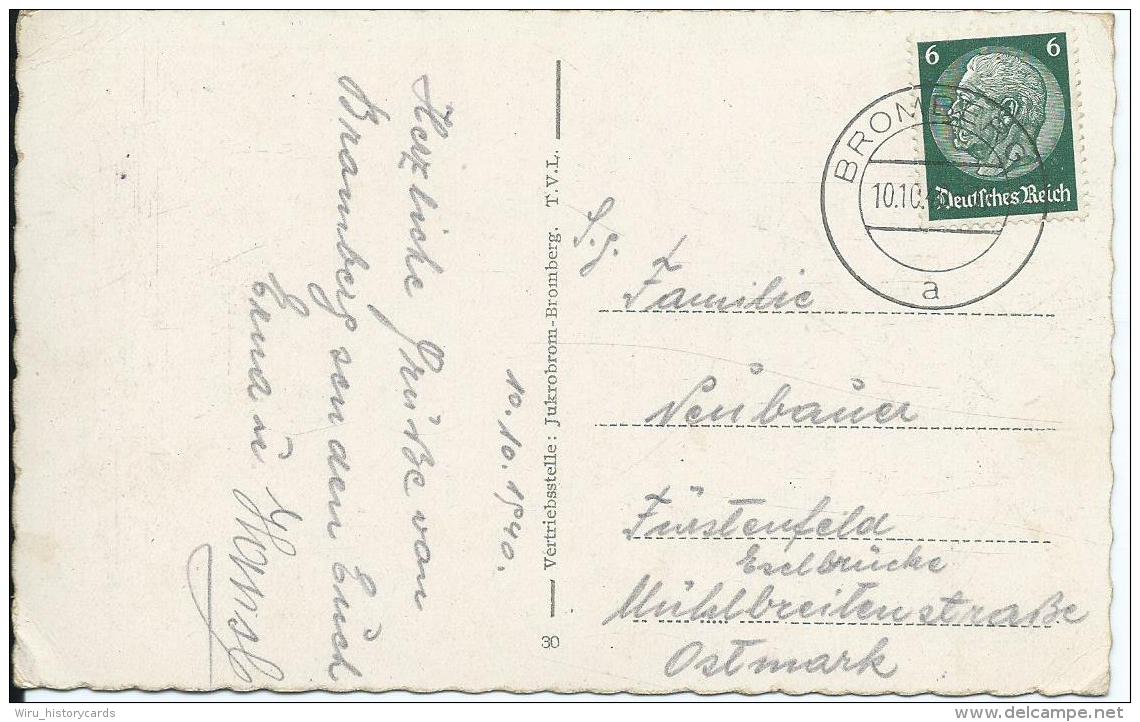 Herzliche Grüße von
Bramberg senden Euch
Erna u. Hansl
10.10.1940.
Vertriebsstelle: Jukrobrom-Bromberg. T.V.L.
30
6 6
Deutsches Reich
BROMBERG
10.10.
a
S.g.
Familie
Neubauer
Fürstenfeld
Eselbrücke
Mühlbreitenstraße
Ostmark
Wiru_historycards
delcampe.net